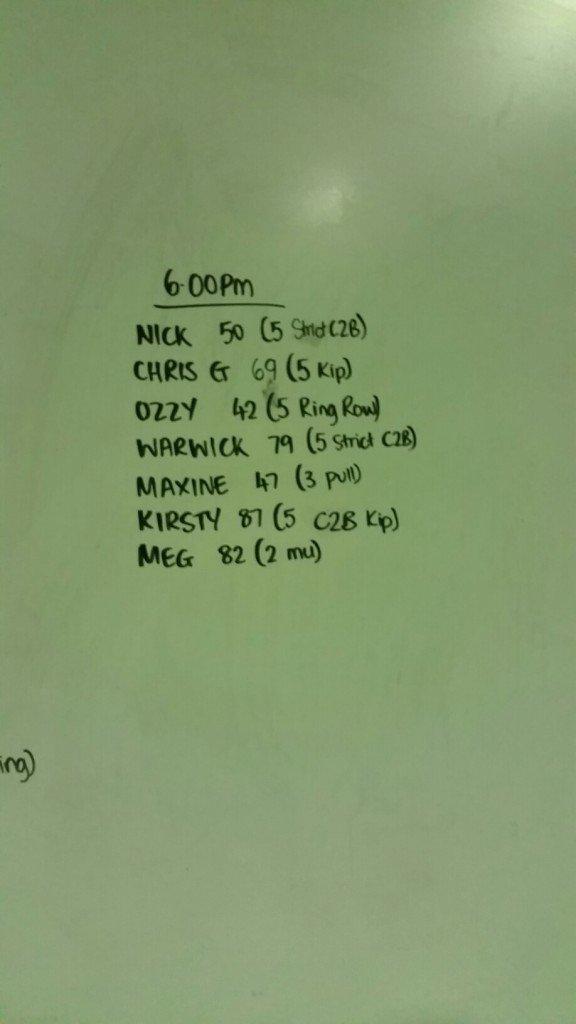 6.00Pm
NICK 50 (5 Strict C2B)
CHRIS G 69 (5 Kip)
OZZY 42 (5 Ring Row)
WARWICK 79 (5 Strict C2B)
MAXINE 47 (3 pull)
KIRSTY 87 (5 C2B Kip)
MEG 82 (2 mu)
ing)